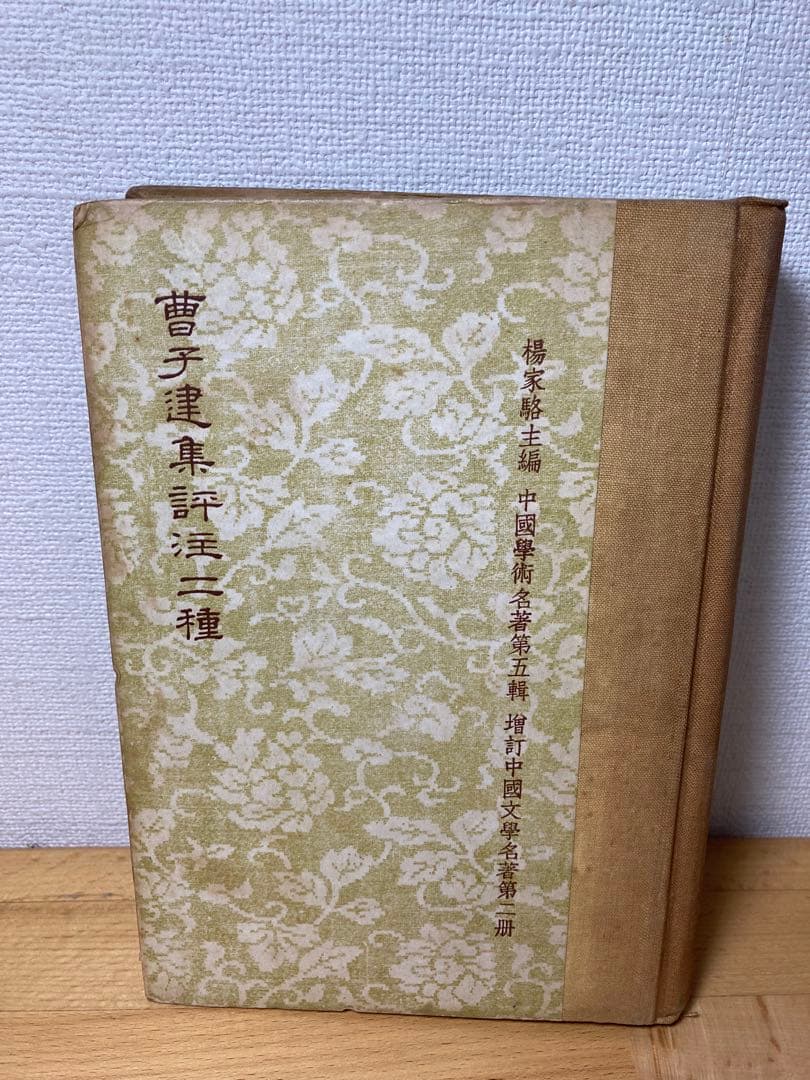 楊家駱主編 中國學術名著第五輯 增訂中國文學名著第二册
曹子建集評注二種